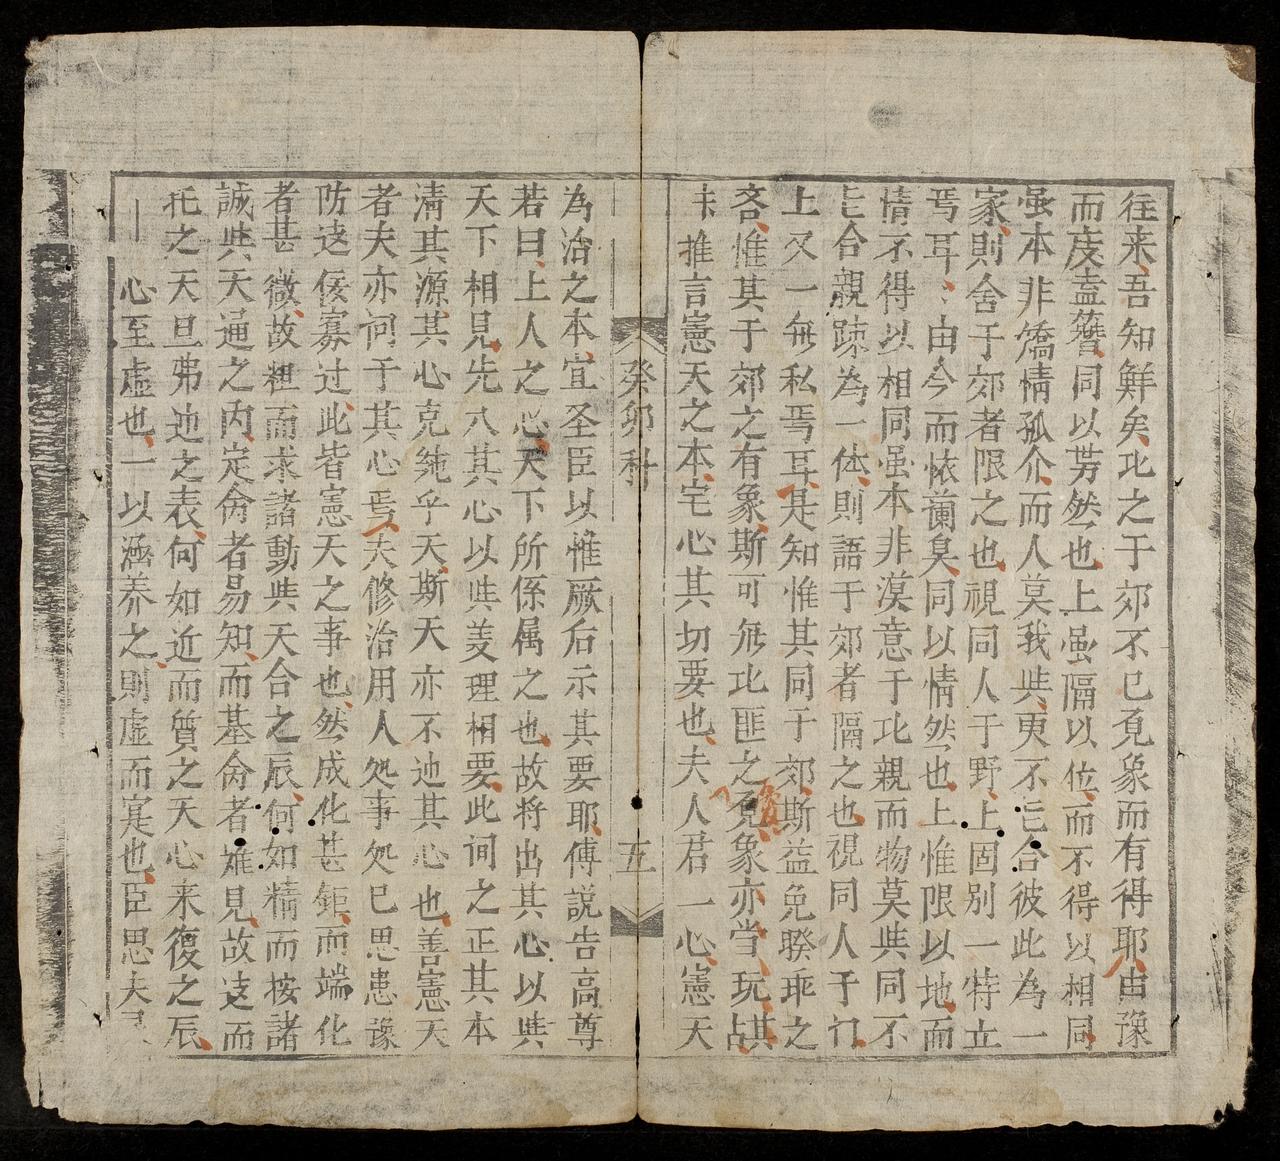 往来吾知鮮矣比之于郊不已覔象而有得耶由豫
而庋盍簪同以勇然也上虽隔以位而不得以相同
虽本非矯情孤介而人莫我㒷更不㐃合彼此為一
家則舍于郊者限之也視同人于野上固别一特立
焉耳由今而㤇蘭臭同以情然也上惟限以地而
情不得以相同虽本非漠意于比親而物莫㒷同不
㐃合親踈為一体則語于郊者隔之也視同人于门
上又一无私焉耳是知惟其同于郊斯益免睽乖之
吝惟其于郊之有象斯可无比匪之覔象亦当玩其占
推言憲天之本宅心其切要也夫人君一心憲天
癸卯科
五
為治之本宜圣臣以惟厥后示其要耶傅説告高尊
若曰上人之心天下所係属之也故将出其心以㒷
天下相見先八其心以㒷羙理相要此词之正其本
清其源其心克純乎天斯天亦不迆其心也善憲天
者夫亦词于其心焉夫修治用人处事处已思患豫
防逺佞寡过此皆憲天之事也然成化甚鉅而端化
者甚微故粗而求諸動㒷天合之辰何如精而按諸
誠㒷天通之内定侖者易知而基侖者难見故逺而
托之天旦弗迆之表何如近而質之天心来復之辰
心至虛也一以涵养之則虛而寔也臣思夫